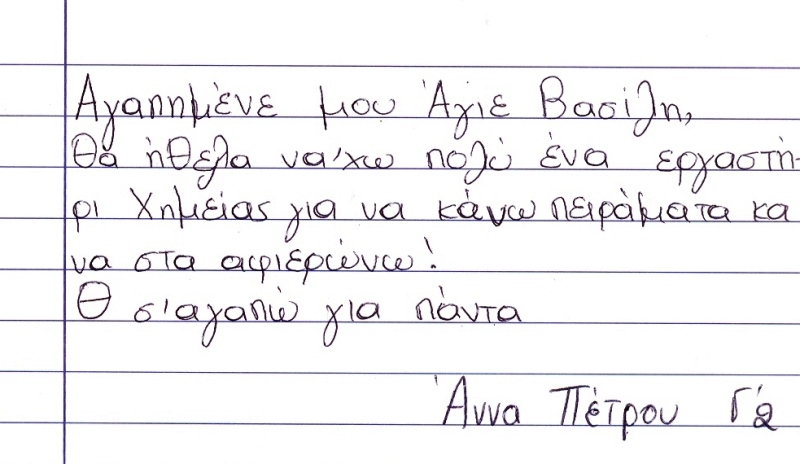 Αγαπημένε μου Άγιε Βασίλη,
Θα ήθελα να'χω πολύ ένα εργαστή-
ρι Χημείας για να κάνω πειράματα κα
να στα αφιερώνω!
Θ σ'αγαπώ για πάντα
Άννα Πέτρου Γ'2